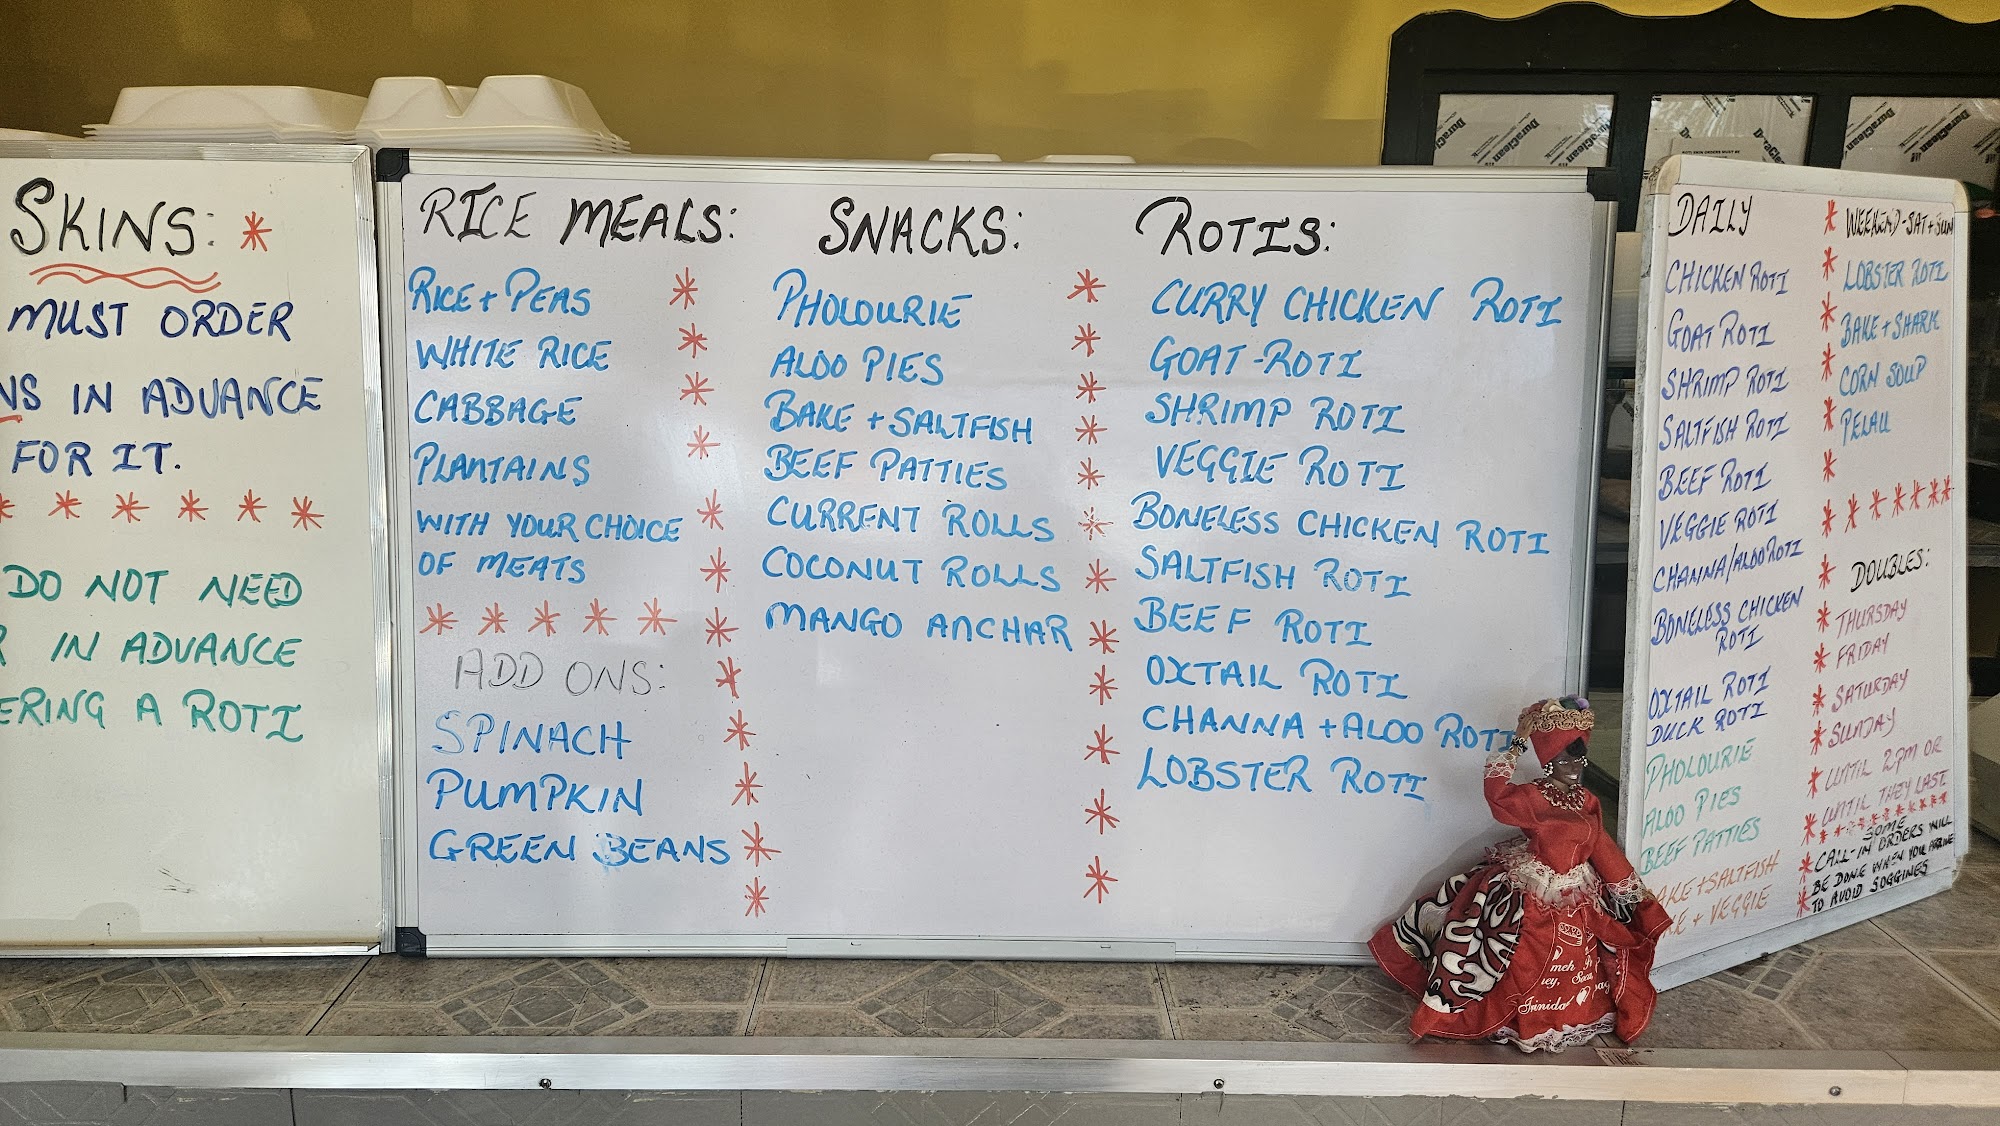 SKINS: *
MUST ORDER
NS IN ADVANCE
FOR IT.
* * * * * *
DO NOT NEED
R IN ADVANCE
ERING A ROTI
RICE MEALS:
RICE + PEAS
WHITE RICE
CABBAGE
PLANTAINS
WITH YOUR CHOICE
OF MEATS
* * * * *
ADD ONS:
SPINACH
PUMPKIN
GREEN BEANS
SNACKS:
PHOLOURIE
ALOO PIES
BAKE + SALTFISH
BEEF PATTIES
CURRENT ROLLS
COCONUT ROLLS
MANGO ANCHAR
ROTIS:
CURRY CHICKEN ROTI
GOAT-ROTI
SHRIMP ROTI
VEGGIE ROTI
BONELESS CHICKEN ROTI
SALTFISH ROTI
BEEF ROTI
OXTAIL ROTI
CHANNA + ALOO ROTI
LOBSTER ROTI
DAILY
CHICKEN ROTI
GOAT ROTI
SHRIMP ROTI
SALTFISH ROTI
BEEF ROTI
VEGGIE ROTI
CHANNA/ALOO ROTI
BONELESS CHICKEN
ROTI
OXTAIL ROTI
DUCK ROTI
PHOLOURIE
ALOO PIES
BEEF PATTIES
AKE + SALTFISH
KE + VEGGIE
WEEKEND-SAT+SUN
LOBSTER ROTI
BAKE + SHARK
CORN SOUP
PELAU
* * * * * *
DOUBLES:
THURSDAY
FRIDAY
SATURDAY
SUNDAY
UNTIL 2PM OR
UNTIL THEY LAST
* * * * * * * *
SOME
CALL-IN ORDERS WILL
BE DONE WHEN YOU ARRIVE
TO AVOID SOGGINES
DuraClean
DuraClean
DuraClean
DuraClean
meh
Trinidad